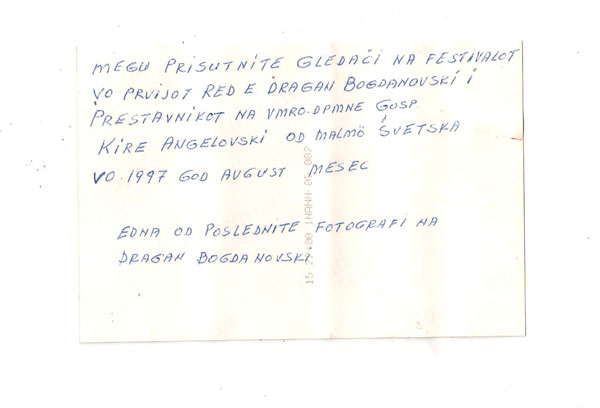 MEGU PRISUTNITE GLEDAČI NA FESTIVALOT
VO PRVIJOT RED E DRAGAN BOGDANOVSKI I
PRESTAVNIKOT NA VMRO-DPMNE GOSP
KIRE ANGELOVSKI OD MALMÖ ŠVETSKA
VO 1997 GOD AUGUST MESEC
EDNA OD POSLEDNITE FOTOGRAFI NA
DRAGAN BOGDANOVSKI